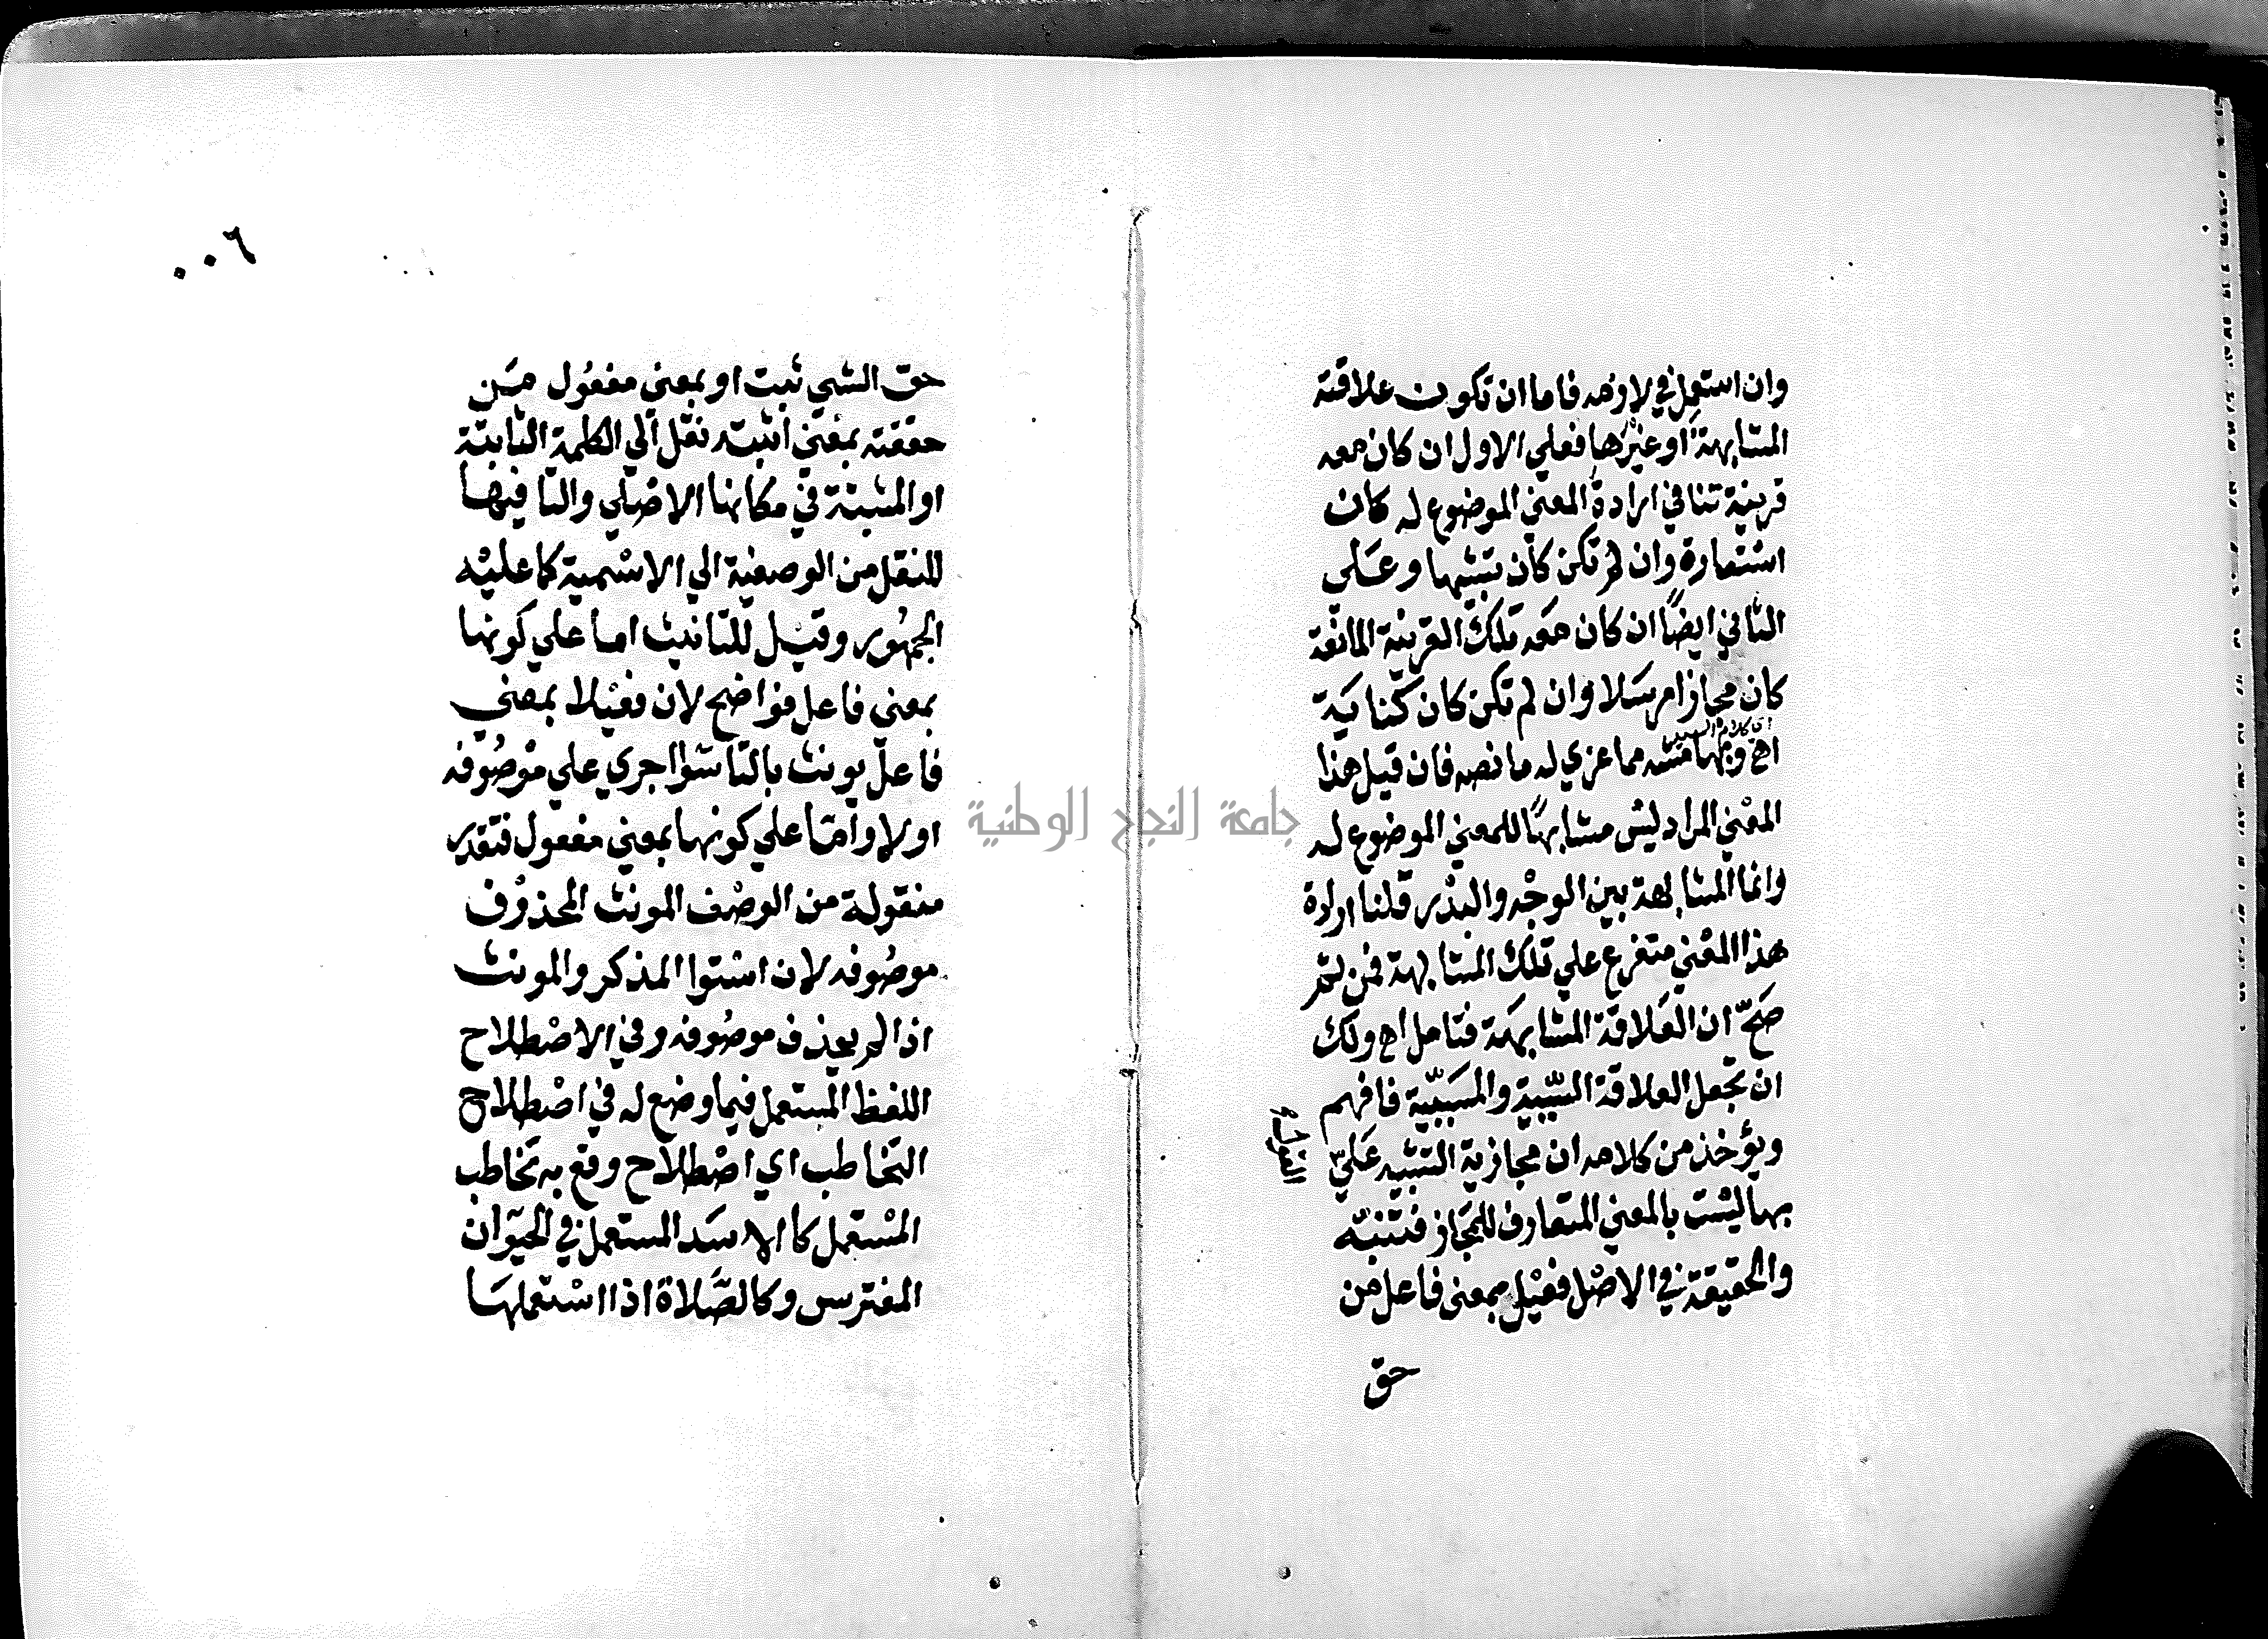 وان استعمل في لازمه فاما ان تكون علاقته
المشابهة او غيرها فعلي الاول ان كان معه
قرينة تنافي ارادة المعني الموضوع له كان
استعارة وان لم تكن كان تشبيها وعلى
الثاني ايضًا ان كان معه تلك القرينة المانعة
كان مجازا مرسلا وان لم تكن كان كناية
اي كلام السيد
اهـ وبهامشه مما عزي له ما نصه فان قيل هذا
المعني المراد ليس مشابهًا للمعني الموضوع له
وانما المشابهة بين الوجه والبدر قلنا ارادة
هذا المعني متفرع علي تلك المشابهة فمن ثم
صحّ ان العلاقة المشابهة فتامل اهـ ولك
ان تجعل العلاقة السّببية والمسَببّية فافهم
ويؤخذ من كلامه ان مجازية التشبيه عَليّ
بها ليست بالمعني المتعارف للمجاز فتنبّه
والحقيقة في الاصل فعيل بمعني فاعل من
حق
٠٠٦
حق الشي ثبت او بمعني مفعول من
حققته بمعني اثبته نقل الي الكلمة الثابتة
او المثبتة في مكانها الاصلي والتا فيها
للنقل من الوصفية الي الاسمية كما عليه
الجمهور وقيل للتانيث اما علي كونها
بمعني فاعل فواضح لان فعيلا بمعني
فاعل يونث بالتا سوا جري علي موصوفه
اولا وامّا علي كونها بمعني مفعول فتقدر
منقولة من الوصف المونث المحذوف
موصوفه لان استوا المذكر والمونث
اذا لم يحذف موصوفه وفي الاصطلاح
اللفظ المستعمل فيما وضع له في اصطلاح
التخاطب اي اصطلاح وقع به تخاطب
المستعمل كا الاسد المستعمل في الحيوان
المفترس وكالصّلاة اذا استعملها
جامعة النجاح الوطنية